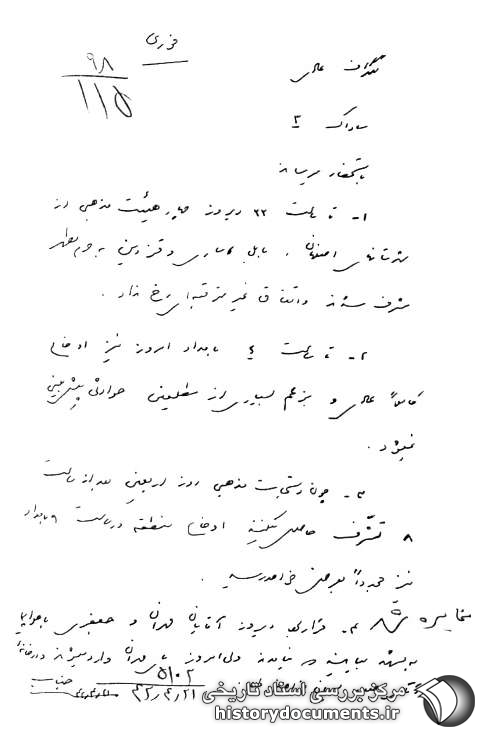 فوری
۹۸
۱۱۵
تلگراف عالی
ساواک ۳
باستحضار میرساند
۱- تا ساعت ۲۲ دیروز چهار هیئت مذهبی از
شهرستانهای اصفهان ، بابل ساری و قزوین به حرم مطهر
مشرف شدند و اتفاق غیر مترقبه‌ای رخ نداد .
۲- تا ساعت ۶ بامداد امروز نیز اوضاع
کاملاً عادی و بزعم بسیاری از مطلعین حوادثی پیش بینی
نمیشود .
۳- چون دستجات مذهبی روز اربعین بعد از ساعت
۸ تشرف حاصل میکنند اوضاع منطقه در ساعت ۹ بامداد
نیز مجدداً بعرض خواهد رسید .
مخابره شد ۴- قرار بود دیروز آقایان و جعفری با هواپیما
به مشهد بیایند نیامدند ولی امروز وارد میشوند
۵۱۰۲
۴۲/۴/۲۱
مرکز بررسی اسناد تاریخی
historydocuments.ir